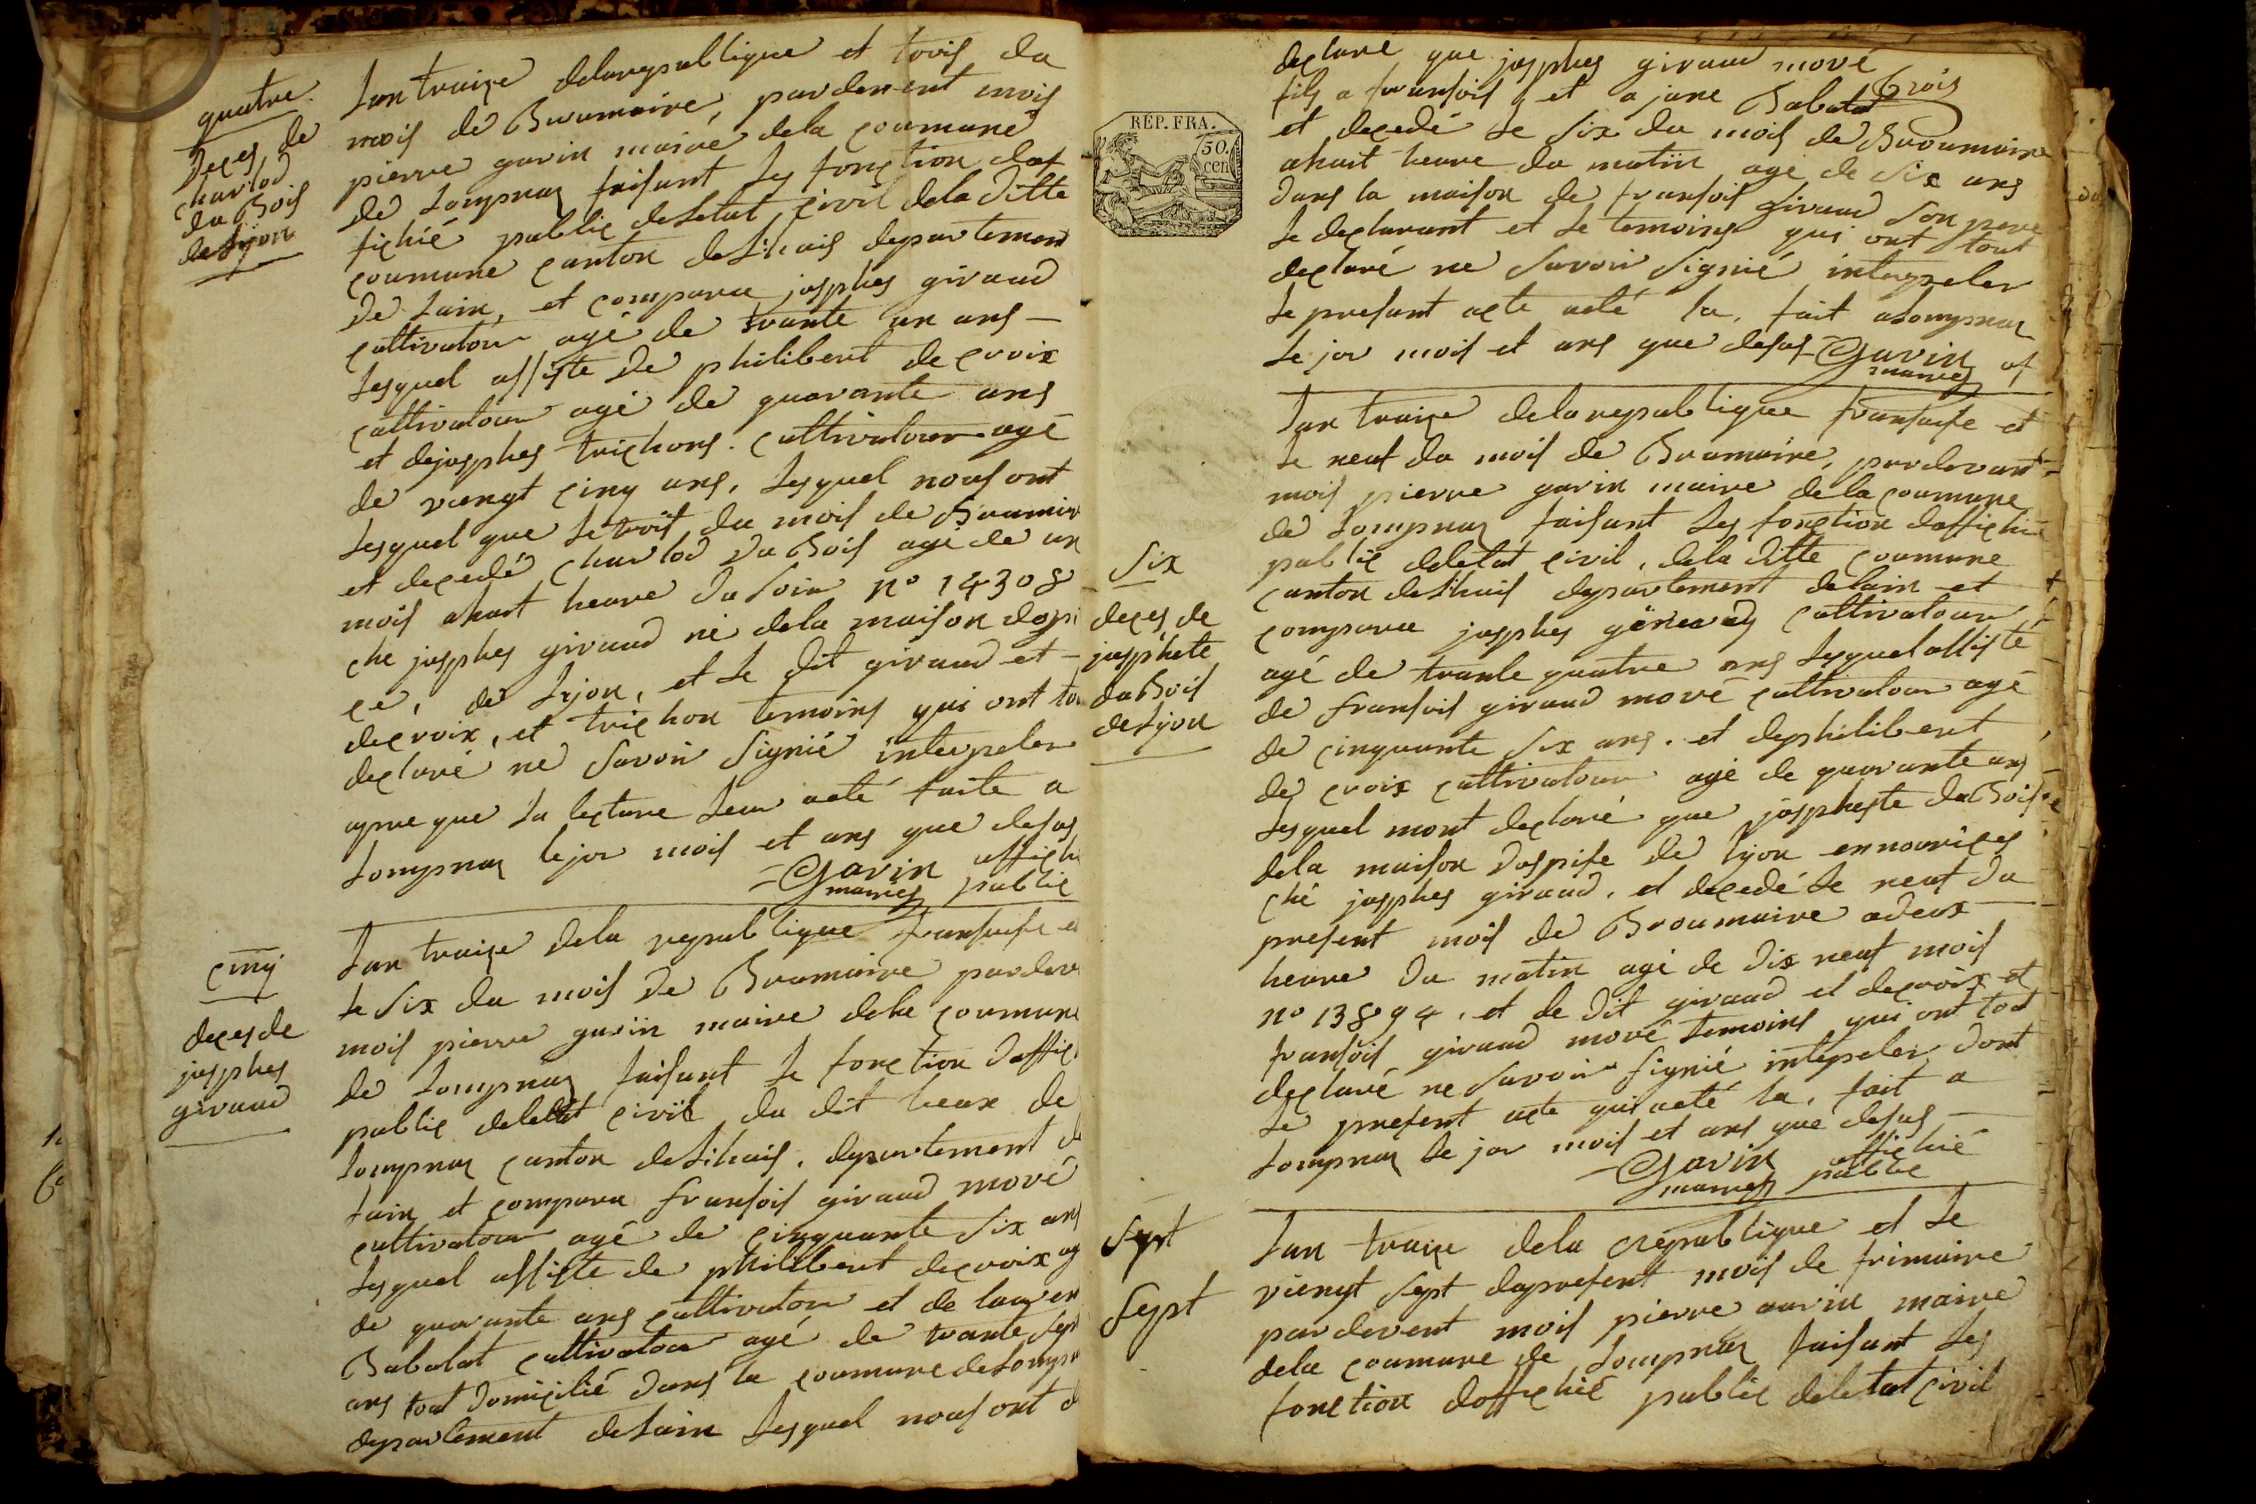 quatre
Deces, de
charlod
du Bois
de Lÿon
Lan traize delarepublique et trois du
mois de Brumaire, pardevent mois
pierre gavin maire dela coumune
de Lompnaz faisant les fonction daf
fichié public deletat civil dela ditte
coumune canton delhuis departement
de Lain, et comparu josphes giraud
cultivatour agé de trante un ans —
Lesquel assiste de philibert de croix
cultivatour agé de quarante ans
et dejosphes trichons. cultivatour agé
de viengt cinq ans, Lesquel nous ont
Lesquel que le trois du mois de Brumair
et decedé charlod du Bois agé de un
mois ahuit heure du soir n° 14308
che josphes giraud né dela maison dospi
ce, de Lyon, et le dit giraud et —
decroix, et trichon temoins qui ont tou
declaré ne savoir signié interpeler
apre que la lecture leur aeté faite a
Lompnaz le jor mois et ans que desus
Gavin affichi
maire public
cinq
deces de
josphes
giraud
Lan traize dela republique fransaise et
le six du mois de Brumaire pardeve
mois pierre gavin maire dela coumune
de Lompnaz faisant le fonction daffic
public deletat civil du dit lieux de
Lompnaz canton delhuis, departement de
Lain et comparu fransois giraud mové
cultivatour agé de cinquante six ans
Lesquel assiste de philibert decroix ag
de quarante ans cultivatour et de lauren
Babolat cultivatour agé de trante sept
ans tout domicilié dans la coumune de Lompn
departement de Lain Lesquel nous ont d
REP. FRA.
50.
cen
trois
declare que josphes giraud mové
fils a fransois et a jane Babolat
et decedé le six du mois de Broumaire
ahuit heure du matiin agé de six ans
dans la maison de fransois giraud son pere
le declarant et le temoins qui ont tout
declaré ne savoir signié interpeler
le presant acte aeté lu, fait aLompnaz
le jor mois et ans que desus Gavin of
maire
Six
deces de
josphete
du Bois
de Lyon
Lan traize dela republique fransaise et
le neuf du mois de Brumaire, pardevant
mois pierre gavin maire dela coumune
de Lompnaz faisant les fonction daffichié
public deletat civil, dela ditte coumune
canton delhuis departement delain et
comparu josphes cultivatour
agé de trante quatre ans Lesquel assiste
de fransois giraud mové cultivatour agé
de cinquante six ans. et dephilibert
de croix cultivatour agé de quarante ans
Lesquel mont declaré que josphete du Bois
dela maison dospise de lyon ennourices
ché josphes giraud, et decedé le neuf du
present mois de Broumaire adeux —
heure du matin agé de dix neuf mois
n° 13894, et le dit giraud et decroix et
fransois giraud mové temoins qui ont tout
declaré ne savoir signié interpeler dont
le present acte qui aeté lu, fait a
Lompnaz le jor mois et ans que desus —
Gavin affichié
maire public
Sept
Sept
Lan traize dela republique et le
viengt sept dupresent mois de frimaire
pardevent mois pierre gavin maire
dela coumune de Lompnaz faisant les
fonction doffichié public deletat civil